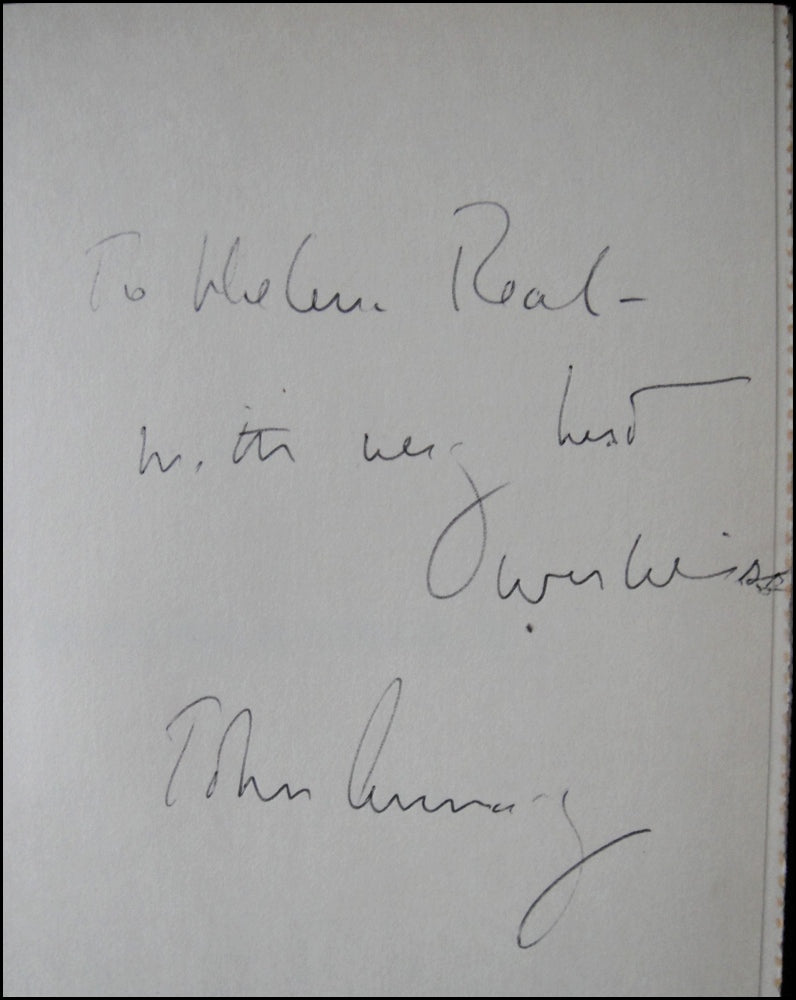 To Helen Real -
with very best
wishes
John